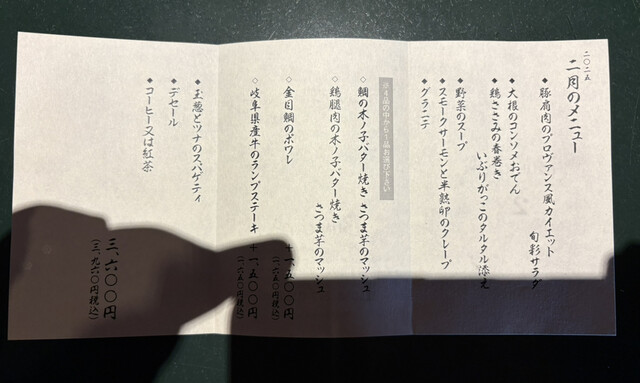 二〇二五
二月のメニュー
◆ 豚肩肉のプロヴァンス風カイエット
旬彩サラダ
◆ 大根のコンソメおでん
◆ 鶏ささみの春巻き
いぶりがっこのタルタル添え
◆ 野菜のスープ
◆ スモークサーモンと半熟卵のクレープ
◆ グラニテ
※4品の中から1品お選び下さい
◇ 鯛の木ノ子バター焼き さつま芋のマッシュ
◇ 鶏腿肉の木ノ子バター焼き
さつま芋のマッシュ
◇ 金目鯛のポワレ
+一、五〇〇円
(一、六五〇円税込)
◇ 岐阜県産牛のランプステーキ +一、五〇〇円
(一、六五〇円税込)
◆ 玉葱とツナのスパゲティ
◆ デセール
◆ コーヒー又は紅茶
三、六〇〇円
(三、九六〇円税込)